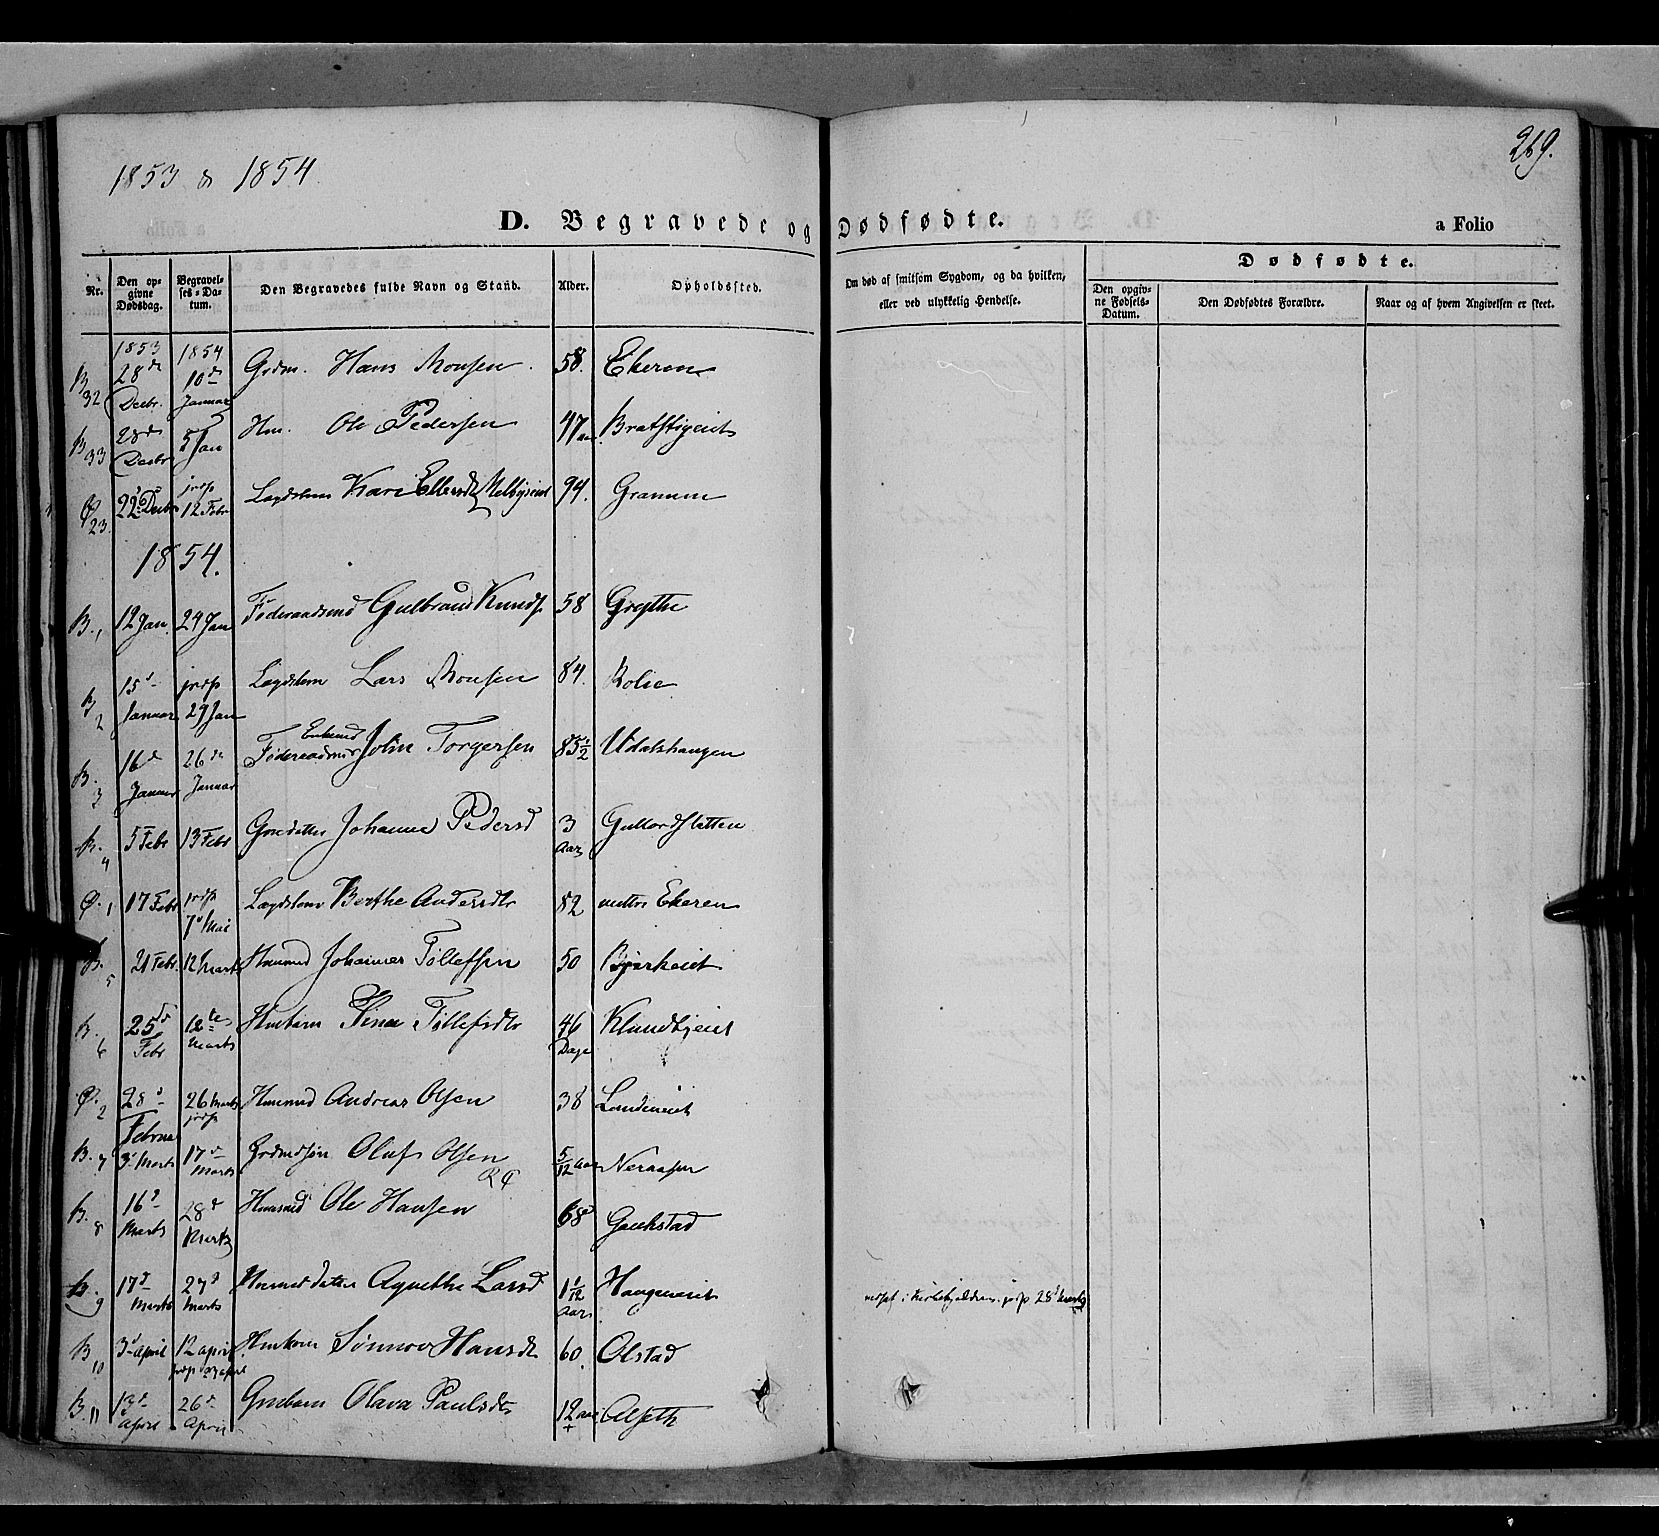 269.
1853 & 1854
D. Begravede og Dødfødte.
a Folio
Nr.
Den opgivne Dødsdag.
Begravelses-Datum.
Den Begravedes fulde Navn og Stand.
Alder.
Opholdssted.
Om død af smitsom Sygdom, og da hvilken, eller ved ulykkelig Hendelse.
Dødfødte.
Den opgivne Fødsels-Datum.
Den Dødfødtes Forældre.
Naar og af hvem Angivelsen er skeet.
1853 1854
B 32 28de Decbr. 10de Januar Grdm. Hans Monsen. 58. Ekeren
B 33 28de Decbr 5 Jan Hm. Ole Pedersen 47 aar Bratstigeiet
Ø 23. 22 Decbr jordf 12 Febr Lægdslem Kari Ellensdtr Melbyeiet 94. Granum
1854.
B. 1 12 Jan. 24 Jan Føderaadsmd Gulbrand Knuds. 58 Grythe
B 2 15d Januar jordf 29 Jan Lægdslem Lars Monsen 84. Kolie
B. 3 16de Januar 26de Januar Føderaadsmd Enkemd John Torgersen 85½ Udalshaugen
B. 4 5 Febr 13 Febr Grdetter Johanne Pedersd 3 Aar Gullordsletten
Ø. 1 17 Febr jordf 7d Mai Lægdslem Berthe Andersdtr 82 nedtre Ekeren
B. 5 21 Febr. 12 Marts Husmd Johannes Tollefsen 50 Bjerkeiet
B. 6 25de Febr 12te Marts Hmbarn Stina Tollefsdtr 46 Dage Klundbyeiet
Ø. 2 28d Februar 26 Marts jordf Husmd Andreas Olsen 38 Landeiet
B. 7 3d Marts 17d Marts Grdmdsøn Oluf Olsen 5/12 aar Neraasen
B. 8 16d Marts 28d Marts Husmd Ole Hansen 68 Gaukstad
B. 9 17d Marts 27d Marts Husmd datter Agnethe Larsd 1 1/12 Aar Haugeneiet nedsat i Kirkekjelderen. jordf 28d Marts
B 10 3d April 12 April jordf 23 April Hmkone Sønnov Hansdt 60. Olstad
B. 11 13d April 26d April Grmbarn Olava Paulsdtr 12 aar + Alseth